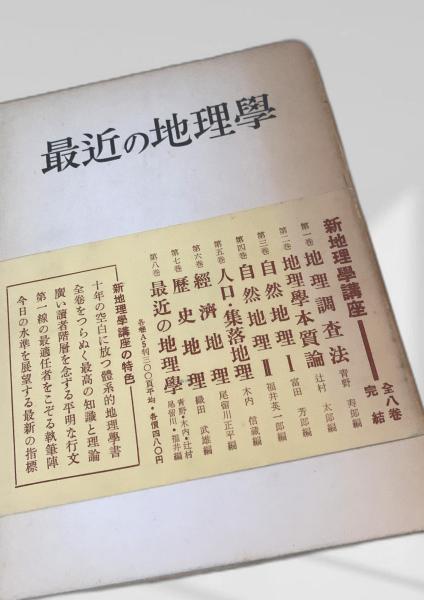 最近の地理學
新地理學講座 全八巻完結
第一巻 地理調査法 青野 寿郎編
第二巻 地理學本質論 辻村 太郎編
第三巻 自然地理Ⅰ 冨田 芳郎編
第四巻 自然地理Ⅱ 福井英一郎編
第五巻 人口・集落地理 木内 信蔵編
第六巻 經濟地理 尾留川正平編
第七巻 歷史地理 織田 武雄編
第八巻 最近の地理學 青野・木内・辻村 尾留川・福井編
各巻A5判三〇〇頁平均・各價四八〇円
新地理學講座の特色
十年の空白に放つ體系的地理學書
全巻をつらぬく最高の知識と理論
廣い讀者階層を念ずる平明な行文
第一線の最適任者をこぞる執筆陣
今日の水準を展望する最新の指標